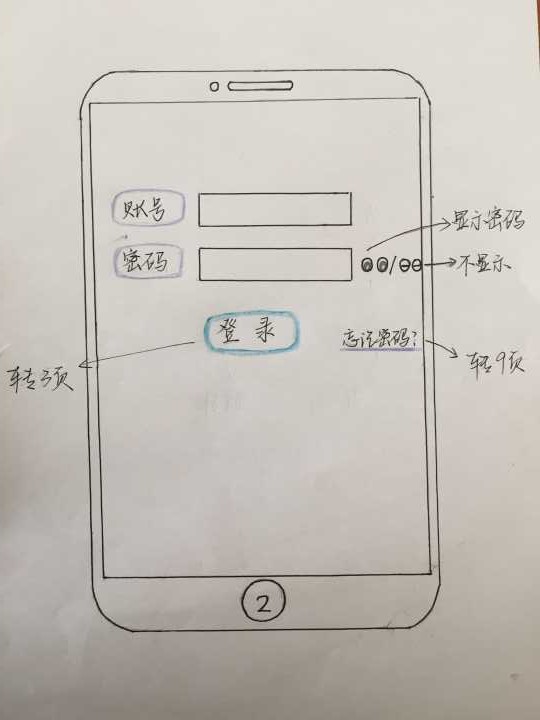 账号
显示密码
密码
不显示
登录
忘记密码?
转3页
转9页
2